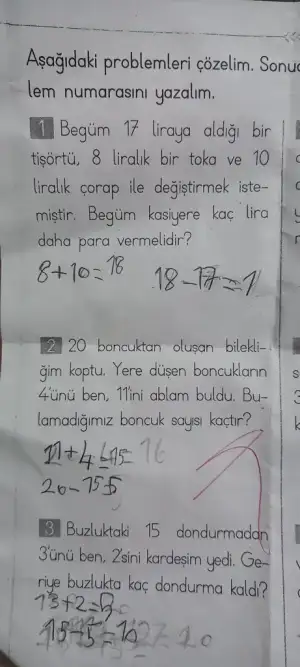 Aşağıdaki problemleri çözelim. Sonuc
lem numarasını yazalım.
1 Begüm 17 liraya aldığı bir
tişörtü, 8 liralık bir toka ve 10
liralık çorap ile değiştirmek iste-
miştir. Begüm kasiyere kaç lira
daha para vermelidir?
8+10=18 18-17=1
2 20 boncuktan oluşan bilekli-
ğim koptu. Yere düşen boncukların
4'ünü ben, 11'ini ablam buldu. Bu-
lamadığımız boncuk sayısı kaçtır?
11+4=15
20-15=5
3 Buzluktaki 15 dondurmadan
3'ünü ben, 2'sini kardeşim yedi. Ge-
riye buzlukta kaç dondurma kaldı?
3+2=5
15-5=10